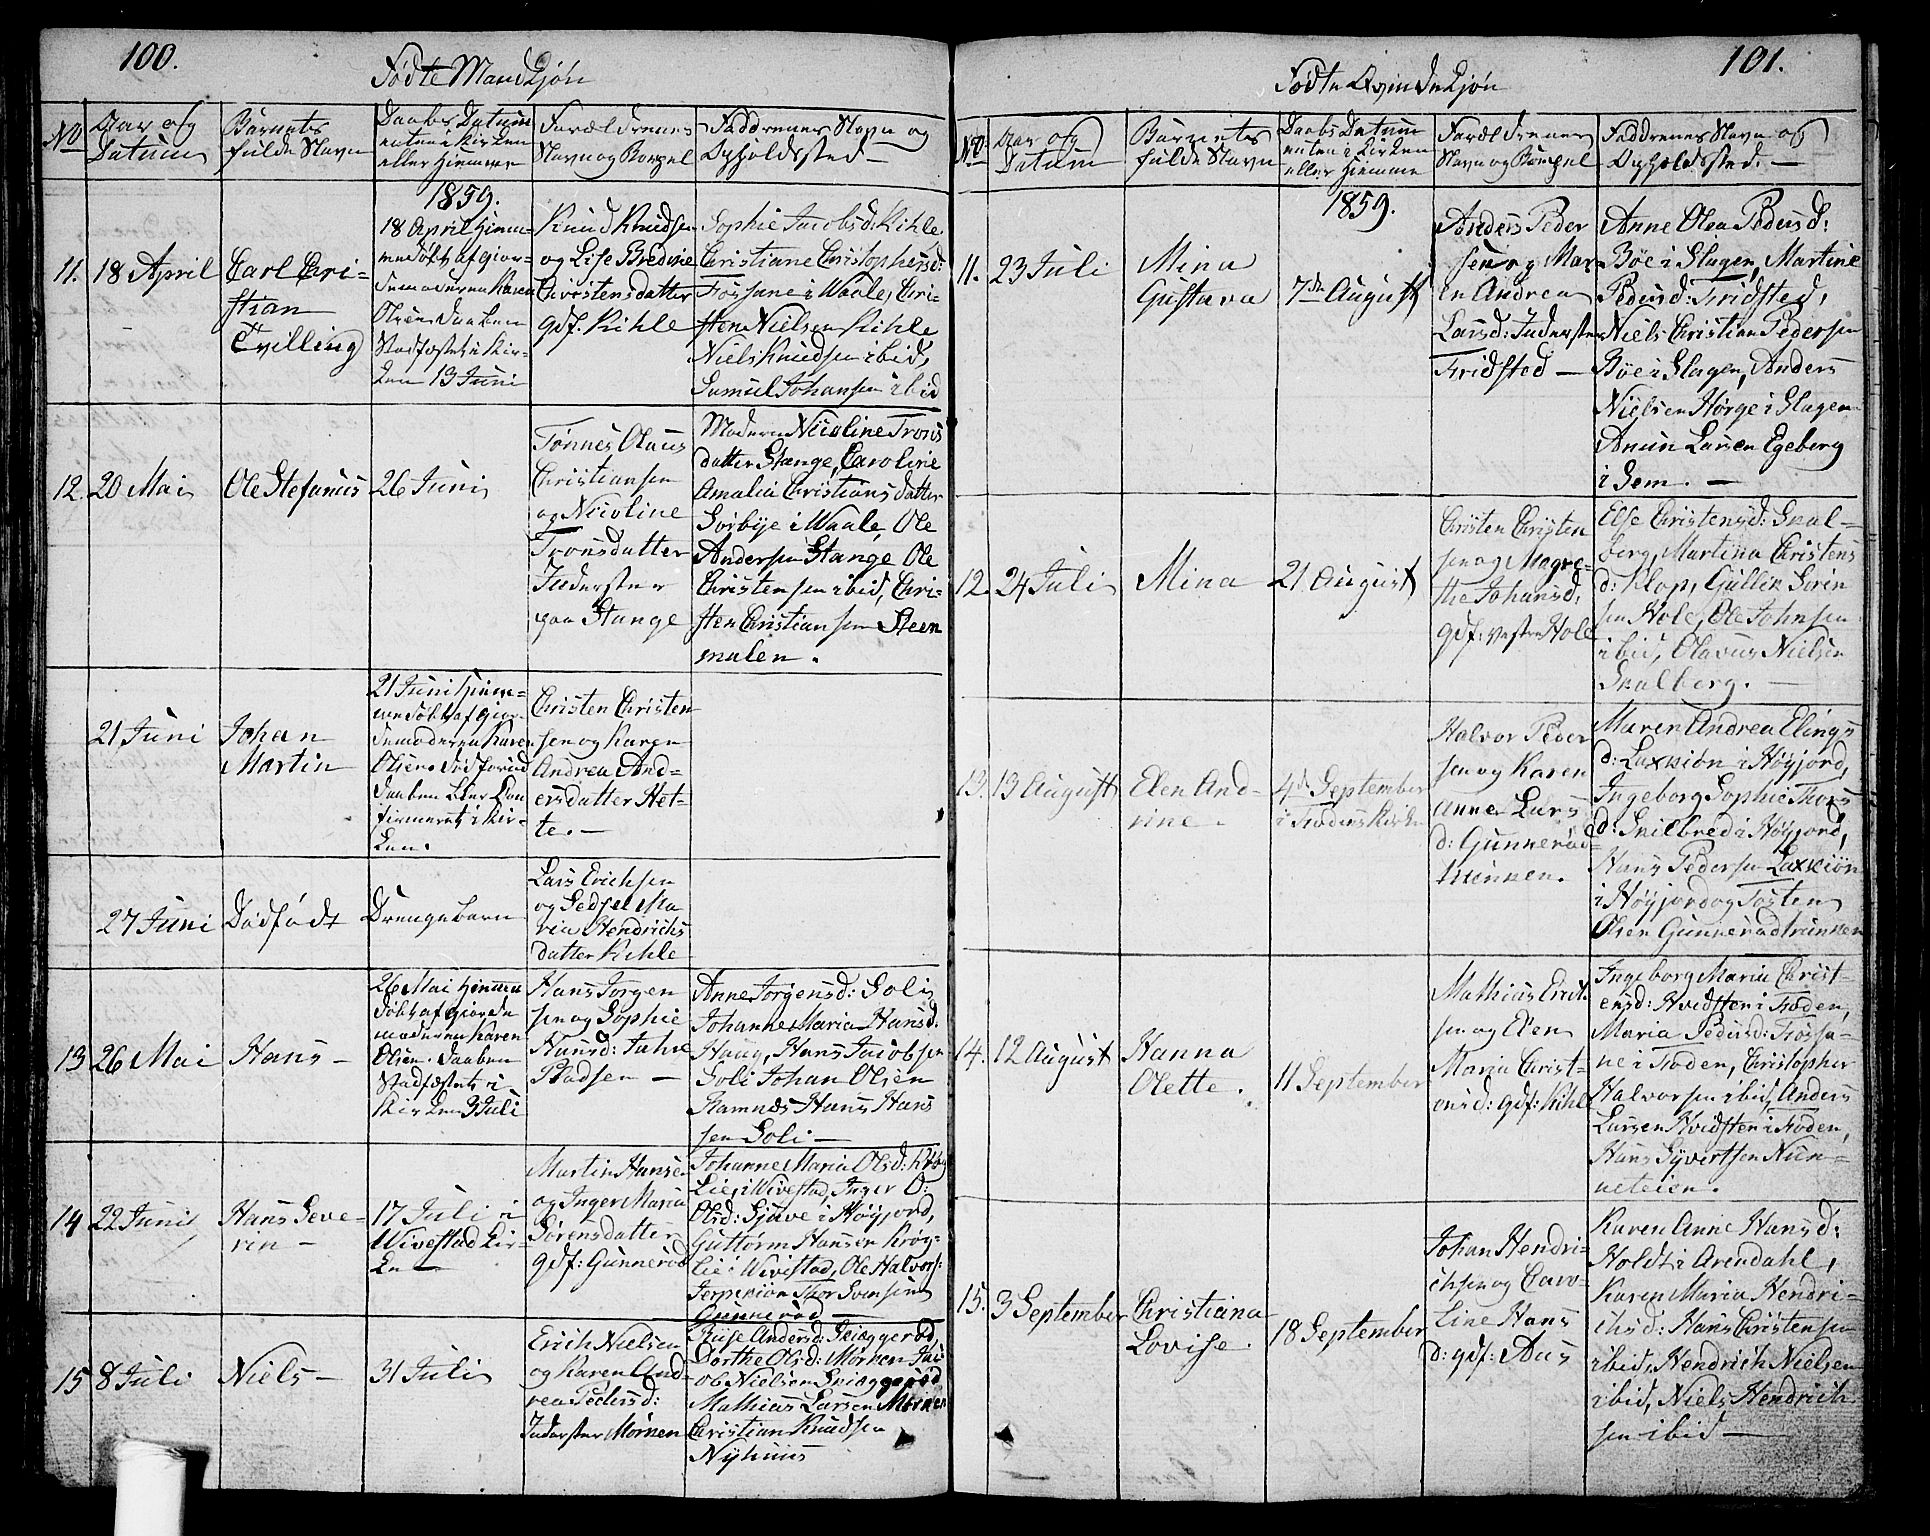 100.
Fødte Mandkjøn
No
Aar og
Datum
Barnets
fulde Navn
Daabs Datum
enten i Kirken
eller Hiemme
Forældrenes
Navn og Borgel
Faddrenes Navn og
Opholdssted —
1859.
11.
18 April
Carl Chri-
stian
Tvilling
18 April Hiem-
medøbt af Gior-
demoderen Karen
Olsen Daaben
Stadfæstet i Kir-
ken 13 Juni
Knud Knudsen
og Lise Bredine
Christensdatter
gdf. Kihle
Sophie Jacobsd: Kihle
Christiane Christophersd:
Fossane i Waale, Chri-
sten Nielsen Kihle
Niels Knudsen ibid,
Samuel Johansen ibid
12.
20 Mai
Ole Stefanus
26 Juni
Tønnes Olaus
Christiansen
og Nicoline
Tronsdatter
Inderster
paa Stange
Moderen Nicoline Trons
datter Stange, Caroline
Amalia Christiansdatter
Sørbye i Waale, Ole
Andersen Stange, Ole
Christensen ibid, Chri-
sten Christiansen Steen
malen.
21 Juni
Johan
Martin
21 Juni Hiem-
medøbt af Gior-
demoderen Karen
Olsen død forend
Daaben blev Con
firmeret i Kir-
ken.
Christen Christen
sen og Karen
Andrea And-
ersdatter Het-
te. —
27 Juni
Dødfødt
Drengebarn
Lars Erichsen
og Sedsel Ma
ria Hendrichs
datter Kihle
13
26 Mai
Hans —
26 Mai Hiemme
døbt af Giorde
moderen Karen
Olsen. Daaben
Stadfæstet i
Kirken 3 Juli
Hans Jørgen
sen og Sophie
Hansd: Jahre
Pladsen —
Anne Jørgensd: Soli
Johanne Maria Hansd.
Haug, Hans Jacobsen
Soli Johan Olsen
Ramnæs Hans Hans
sen Soli —
14
22 Juni
Hans Seve-
rin —
17 Juli i
Wivestad Kir-
ke —
Martin Hansen
og Inger Maria
Sørensdatter
gdf: Gunnerød
Johanne Maria Olsd: Krøg
Lie, i Wivestad, Inger D:
Olsd: Sjuve i Høyjord,
Guttorm Hansen Krøg-
lie i Wivestad, Ole Halvors:
Thor Svensen
Gunnerød —
15
8 Juli
Niels —
31 Juli
Erich Nielsen
og Karen And
rea Pedersd:
Inderster Mørken
Andersd: Skiæggerød,
Dorthe Olsd: Mørken Jac
ob Nielsen Skiæggerød
Mathias Larsen Mørken
Christian Knudsen
Nyhuus
101.
Fødte Qvindekjøn
No
Aar og
Datum
Barnets
fulde Navn
Daabs Datum
enten i Kirken
eller Hiemme
Forældrenes
Navn og Borgel
Faddrenes Navn og
Opholdssted. —
1859.
11.
23 Juli
Mina
Gustava
7de August
Anders Peder
sen og Mar
en Andrea
Larsd: Inderster
Fridsted —
Anne Olea Pedersd:
Bøe i Slagen, Martine
Pedersd: Fridsted,
Niels Christian Pedersen
Bøe i Slagen, Anders
Nielsen Hørge i Slagen
Anun Larsen Egeberg
i Sem. —
12.
24 Juli
Mina
21 August
Christen Christen
sen og Magre-
the Johansd,
gdf: vestre Hole
Else Christensd: Skal-
berg, Martina Christens
d: Klop, Gullik Søren
sen Hole, Ole Johnsen
ibid, Olavus Nielsen
Skalberg. —
13.
13 August
Elen And-
rine.
4de September
i Fødens Kirke
Halvor Peder
sen og Karen
Anne Lars
d: Gunnerød-
trunken.
Maren Andrea Elings
d: Laxkiøn i Høyjord,
Ingeborg Sophie Thors
d: Snilbred i Høyjord,
Hans Pedersen Laxkiøn
i Høyjord og Tosten
Olsen Gunnerødtrunken
14.
12 August
Hanna
Olette.
11 September
Mathias Erik
sen og Elen
Maria Christ-
ensd: gdf: Kihle
Ingeborg Maria Christ-
ensd: Hvidsten i Foden,
Maria Pedersd: Fossa-
ne i Foden, Christopher
Halvorsen ibid, Anders
Larsen Hvidsten i Foden,
Hans Syvertsen Nun-
neteien.
15.
3 September
Christiana
Lovise.
18 September
Johan Hendri-
chsen og Caro-
line Hans
d: gdf: Aus
Karen Anne Hansd:
Holdt i Arendahl,
Karen Maria Hendri-
chsd: Hans Christensen
ibid, Hendrich Nielsen
ibid, Niels Hendrich-
sen ibid —